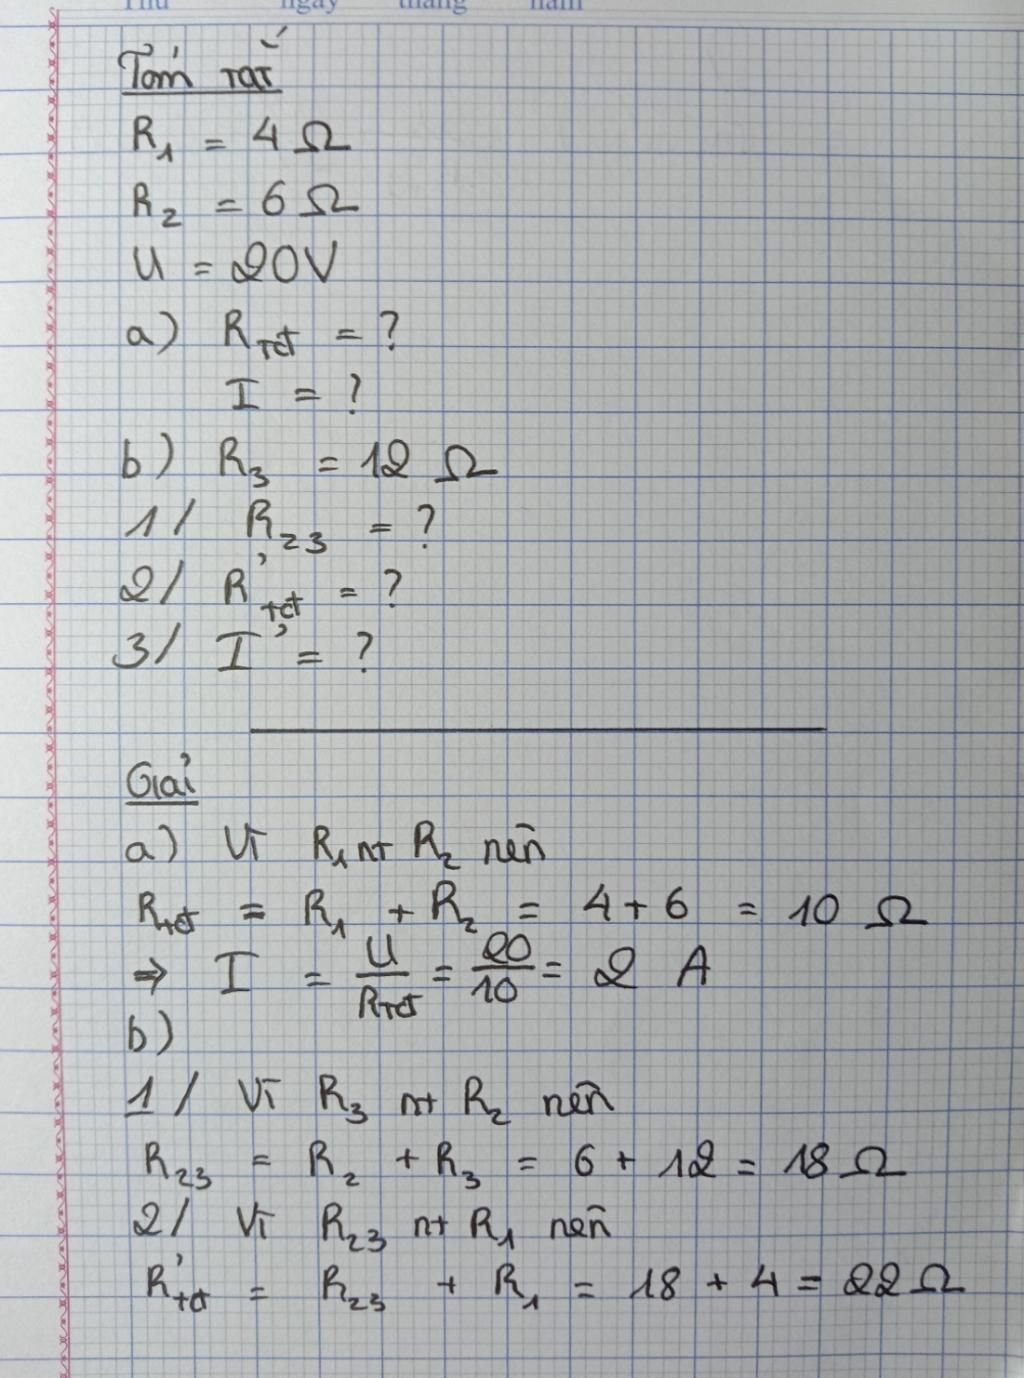 Thứ ngày tháng năm
Tóm tắt
R₁ = 4 Ω
R₂ = 6 Ω
U = 20V
a) R_tđ = ?
I = ?
b) R₃ = 12 Ω
1/ R₂₃ = ?
2/ R'_tđ = ?
3/ I' = ?
Giải
a) Vì R₁ nt R₂ nên
R_tđ = R₁ + R₂ = 4 + 6 = 10 Ω
⇒ I = U/R_tđ = 20/10 = 2 A
b)
1/ Vì R₃ nt R₂ nên
R₂₃ = R₂ + R₃ = 6 + 12 = 18 Ω
2/ Vì R₂₃ nt R₁ nên
R'_tđ = R₂₃ + R₁ = 18 + 4 = 22 Ω